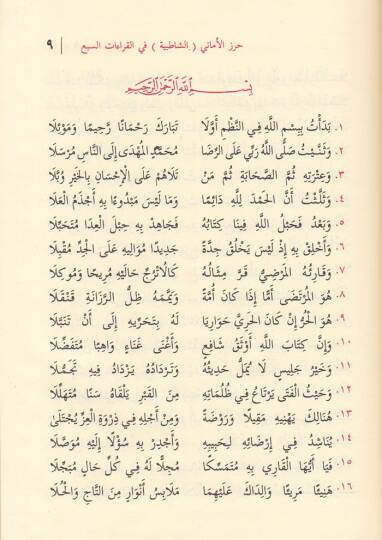 حرز الأماني ( الشاطبية ) في القراءات السبع | ٩
بِسْمِ ٱللَّهِ ٱلرَّحْمَٰنِ ٱلرَّحِيمِ
١. بَدَأْتُ بِبِسْمِ اللَّهِ فِي النَّظْمِ أَوَّلَا تَبَارَكَ رَحْمَانًا رَحِيمًا وَمَوْئِلَا
٢. وَثَنَّيْتُ صَلَّى اللَّهُ رَبِّي عَلَى الرِّضَا مُحَمَّدٍ الْمُهْدَى إِلَى النَّاسِ مُرْسَلَا
٣. وَعِتْرَتِهِ ثُمَّ الصَّحَابَةِ ثُمَّ مَنْ تَلَاهُمْ عَلَى الْإِحْسَانِ بِالْخَيْرِ وُبَّلَا
٤. وَثَلَّثْتُ أَنَّ الْحَمْدَ لِلَّهِ دَائِمًا وَمَا لَيْسَ مَبْدُوءًا بِهِ أَجْذَمُ الْعَلَا
٥. وَبَعْدُ فَحَبْلُ اللَّهِ فِينَا كِتَابُهُ فَجَاهِدْ بِهِ حِبْلَ الْعِدَا مُتَحَبِّلَا
٦. وَأَخْلِقْ بِهِ إِذْ لَيْسَ يَخْلُقُ جِدَّةً جَدِيدًا مُوَالِيهِ عَلَى الْجِدِّ مُقْبِلَا
٧. وَقَارِئُهُ الْمَرْضِيُّ قَرَّ مِثَالُهُ كَالْاتْرُجِّ حَالَيْهِ مُرِيحًا وَمُوكِلَا
٨. هُوَ الْمُرْتَضَى أَمًّا إِذَا كَانَ أُمَّةً وَيَمَّمَهُ ظِلُّ الرَّزَانَةِ قَنْقَلَا
٩. هُوَ الْحُرُّ إِنْ كَانَ الْحَرِيَّ حَوَارِيًا لَهُ بِتَحَرِّيهِ إِلَى أَنْ تَنَبَّلَا
١٠. وَإِنَّ كِتَابَ اللَّهِ أَوْثَقُ شَافِعٍ وَأَغْنَى غَنَاءٍ وَاهِبًا مُتَفَضِّلَا
١١. وَخَيْرُ جَلِيسٍ لَا يُمَلُّ حَدِيثُهُ وَتَرْدَادُهُ يَزْدَادُ فِيهِ تَجَمُّلَا
١٢. وَحَيْثُ الْفَتَى يَرْتَاعُ فِي ظُلُمَاتِهِ مِنَ الْقَبْرِ يَلْقَاهُ سَنًا مُتَهَلِّلَا
١٣. هُنَالِكَ يَهْنِيهِ مَقِيلًا وَرَوْضَةً وَمِنْ أَجْلِهِ فِي ذِرْوَةِ الْعِزِّ يُجْتَلَى
١٤. يُنَاشِدُ فِي إِرْضَائِهِ لِحَبِيبِهِ وَأَجْدِرْ بِهِ سُؤْلًا إِلَيْهِ مُوَصَّلَا
١٥. فَيَا أَيُّهَا الْقَارِي بِهِ مُتَمَسِّكًا مُجِلًّا لَهُ فِي كُلِّ حَالٍ مُبَجِّلَا
١٦. هَنِيئًا مَرِيئًا وَالِدَاكَ عَلَيْهِمَا مَلَابِسُ أَنْوَارٍ مِنَ التَّاجِ وَالْحُلَا